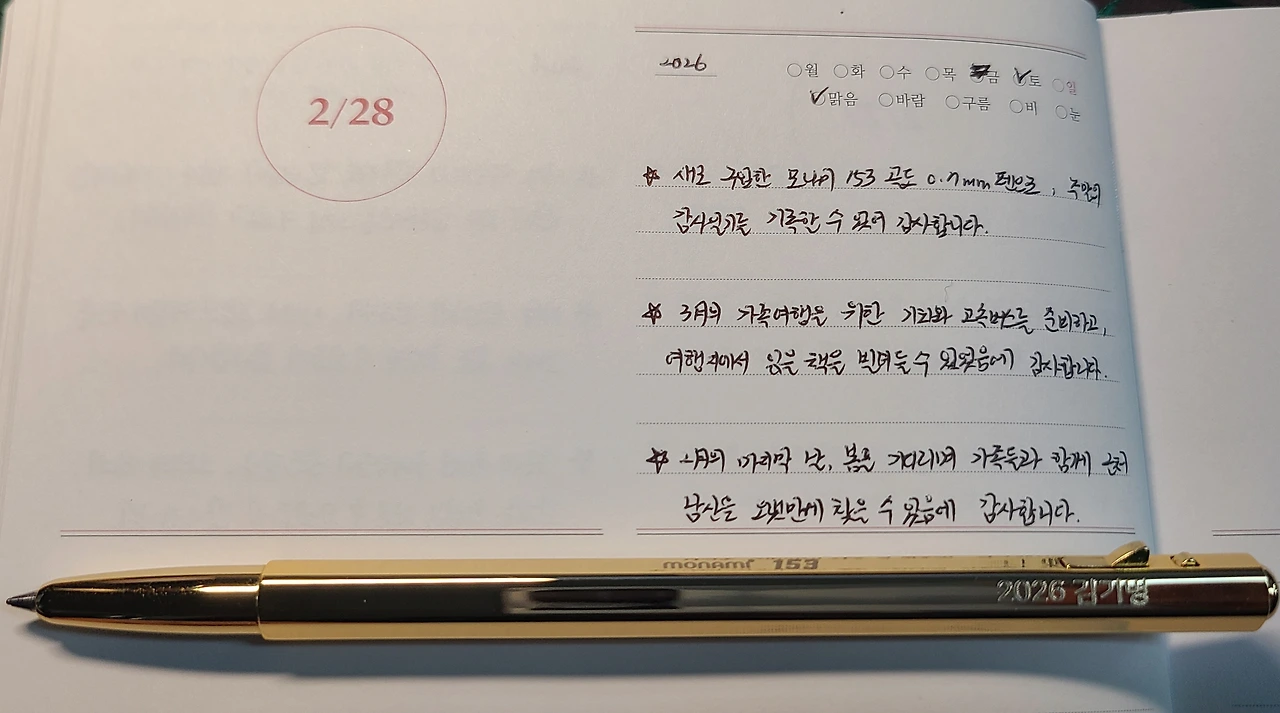 2/28
2026
월 화 수 목 금 토 일
맑음 바람 구름 비 눈
☆ 새로 구입한 모나미 153 골드 0.7mm 펜으로,
감사일기를 기록할 수 있어 감사합니다.
☆ 3月의 가족여행을 위한 기차와 고속버스를 준비하고,
여행지에서 읽을 책을 빌려둘 수 있었음에 감사합니다.
☆ 2月의 마지막 날, 봄을 기다리며 가족들과 함께 근처
남산을 오랜만에 찾을 수 있음에 감사합니다.
monami 153
2026 김기명